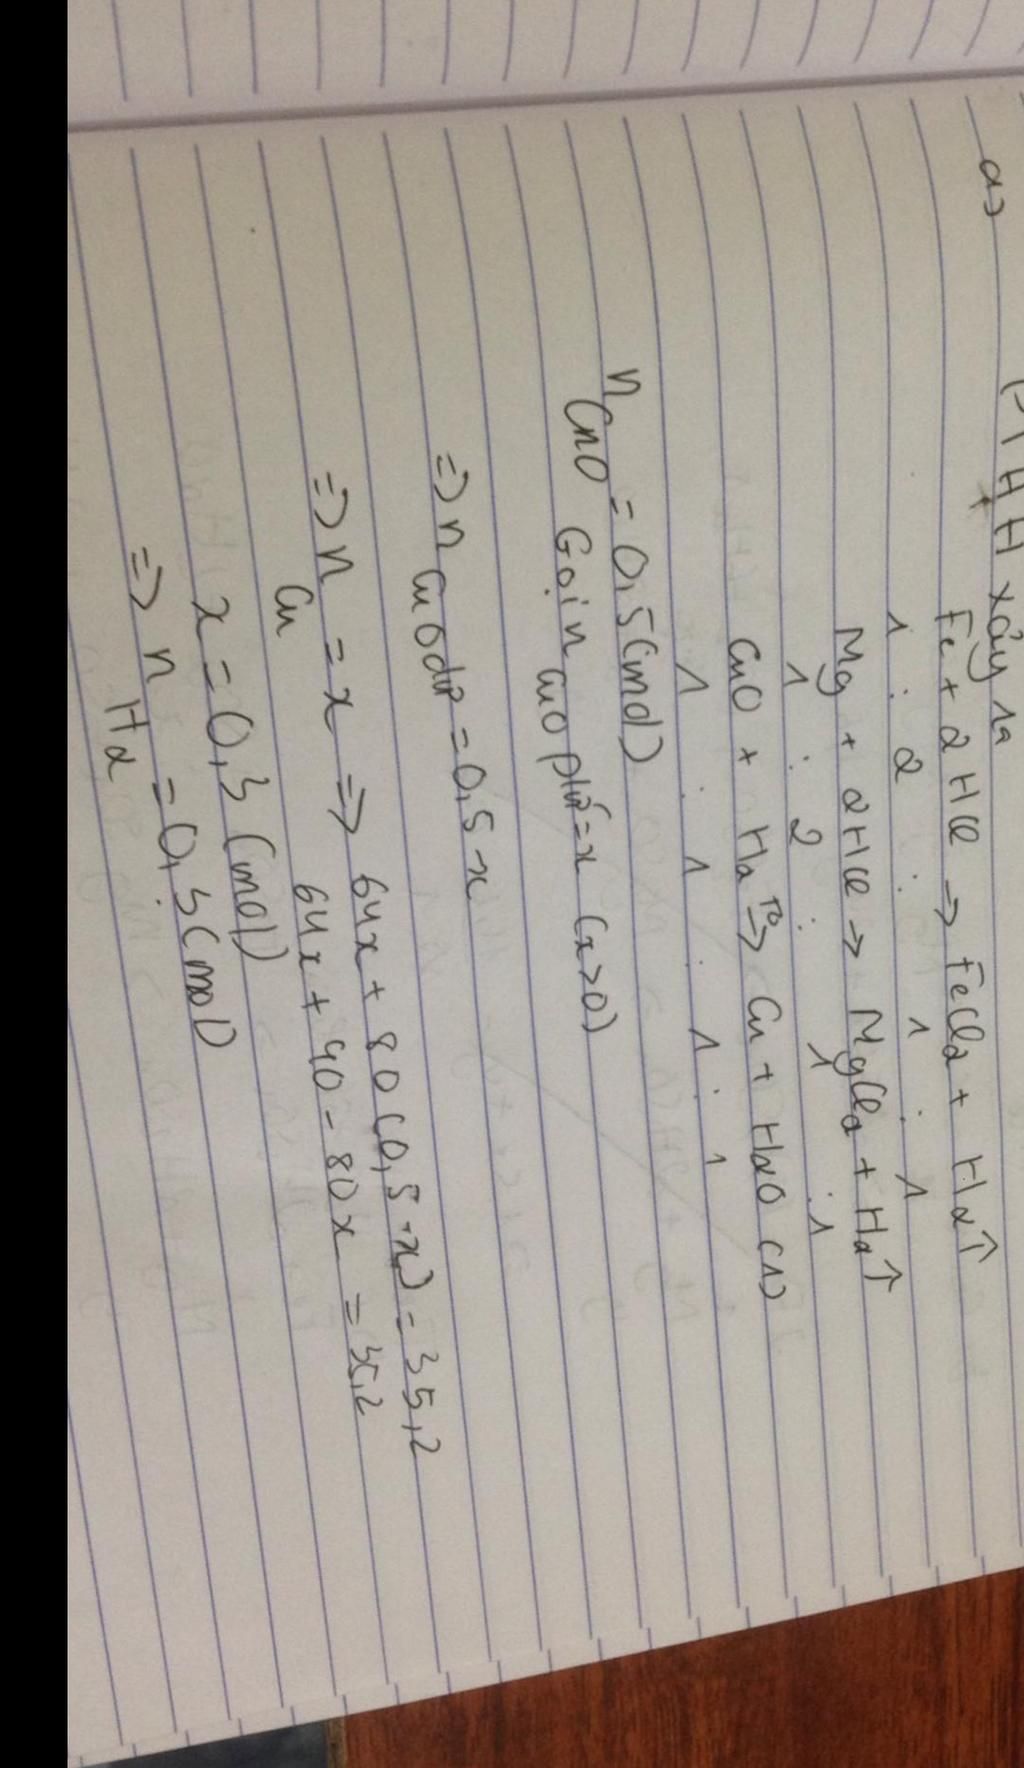 a) PTHH xảy ra
Fe + 2HCl → FeCl2 + H2↑
1 : 2 : 1 : 1
Mg + 2HCl → MgCl2 + H2↑
1 : 2 : 1 : 1
CuO + H2 →T° Cu + H2O (1)
1 : 1 : 1 : 1
nCuO = 0,5(mol)
Gọi nCuO pứ = x (x>0)
=> nCuO dư = 0,5-x
=> nCu = x => 64x + 80(0,5-x) = 35,2
64x + 40 - 80x = 35,2
x = 0,3 (mol)
=> nH2 = 0,3(mol)